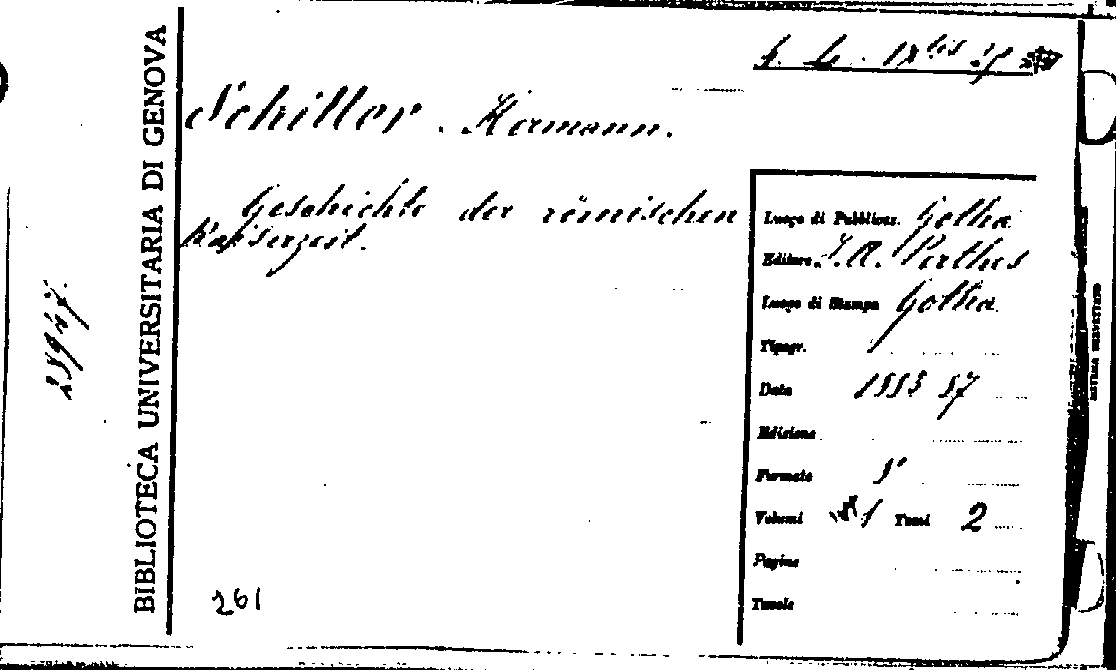 BIBLIOTECA UNIVERSITARIA DI GENOVA
Schiller. Hermann.
Geschichte der römischen
Kaiserzeit.
Luogo di Pubblicaz. Gotha
Editore F. A. Perthes
Luogo di Stampa Gotha
Tipogr.
Data 1883 87
Edizione
Formato 8°
Volumi 1 Tomi 2
Pagine
Tavole
261